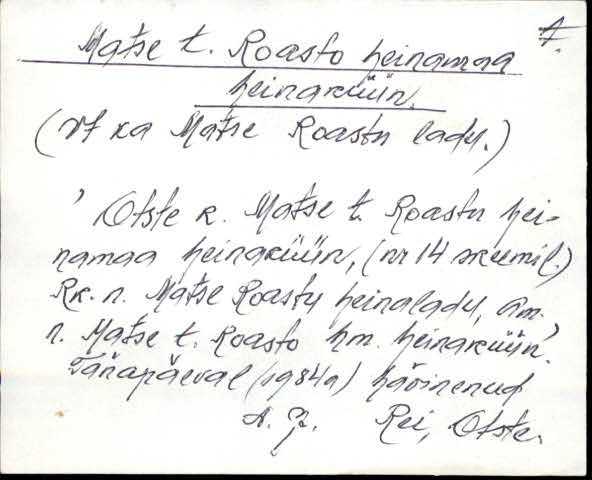 7.
Matse t. Roasto heinamaa
heinaküün.
(vt ka Matse Roastu ladu.)
' Otste k. Matse t. Roastu hei-
namaa heinaküün, (nr 14 skeemil.)
Rk. n. Matse Roastu heinaladu, am.
n. Matse t. Roasto hm. heinaküün'.
Tänapäeval (1984a) hävinenud
Rei, Otste.